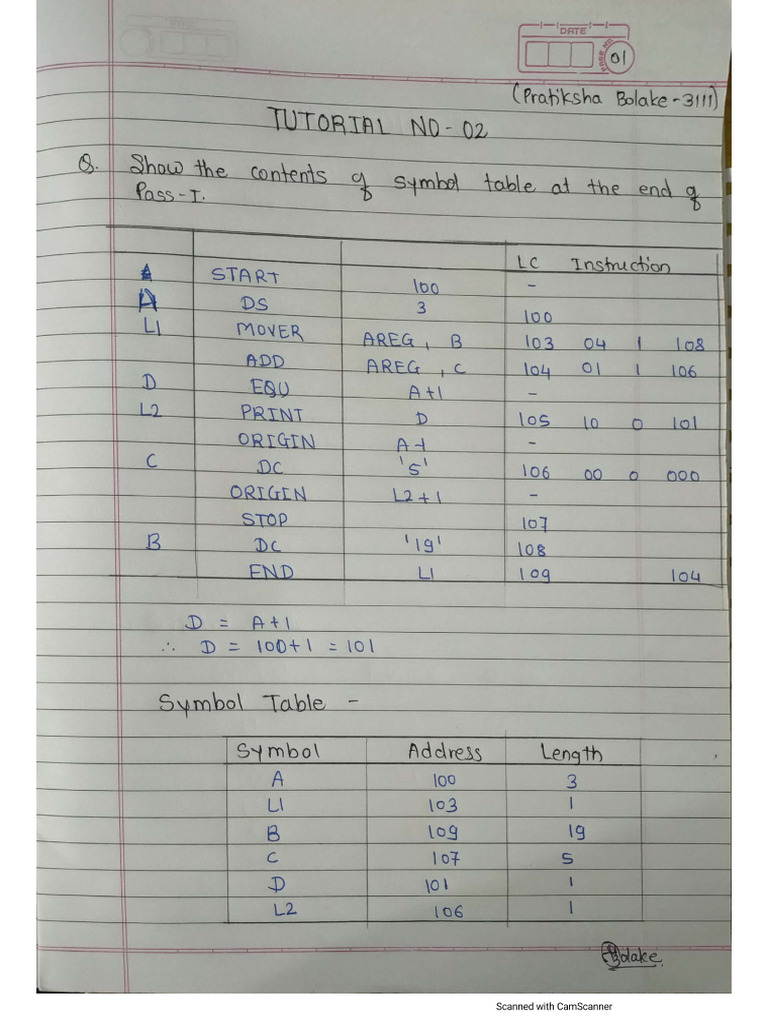 DATE
PAGE NO.
01
(Pratiksha Bolake - 3111)
TUTORIAL NO - 02
Q. Show the contents of symbol table at the end of
Pass - I.
LC Instruction
START 100 -
A DS 3 100
L1 MOVER AREG, B 103 04 1 108
ADD AREG, C 104 01 1 106
D EQU A+1 -
L2 PRINT D 105 10 0 101
ORIGIN A-1 -
C DC '5' 106 00 0 000
ORIGIN L2+1 -
STOP 107
B DC '19' 108
END L1 109 104
D = A+1
∴ D = 100+1 = 101
Symbol Table -
Symbol Address Length
A 100 3
L1 103 1
B 109 19
C 107 5
D 101 1
L2 106 1
Bolake.
Scanned with CamScanner